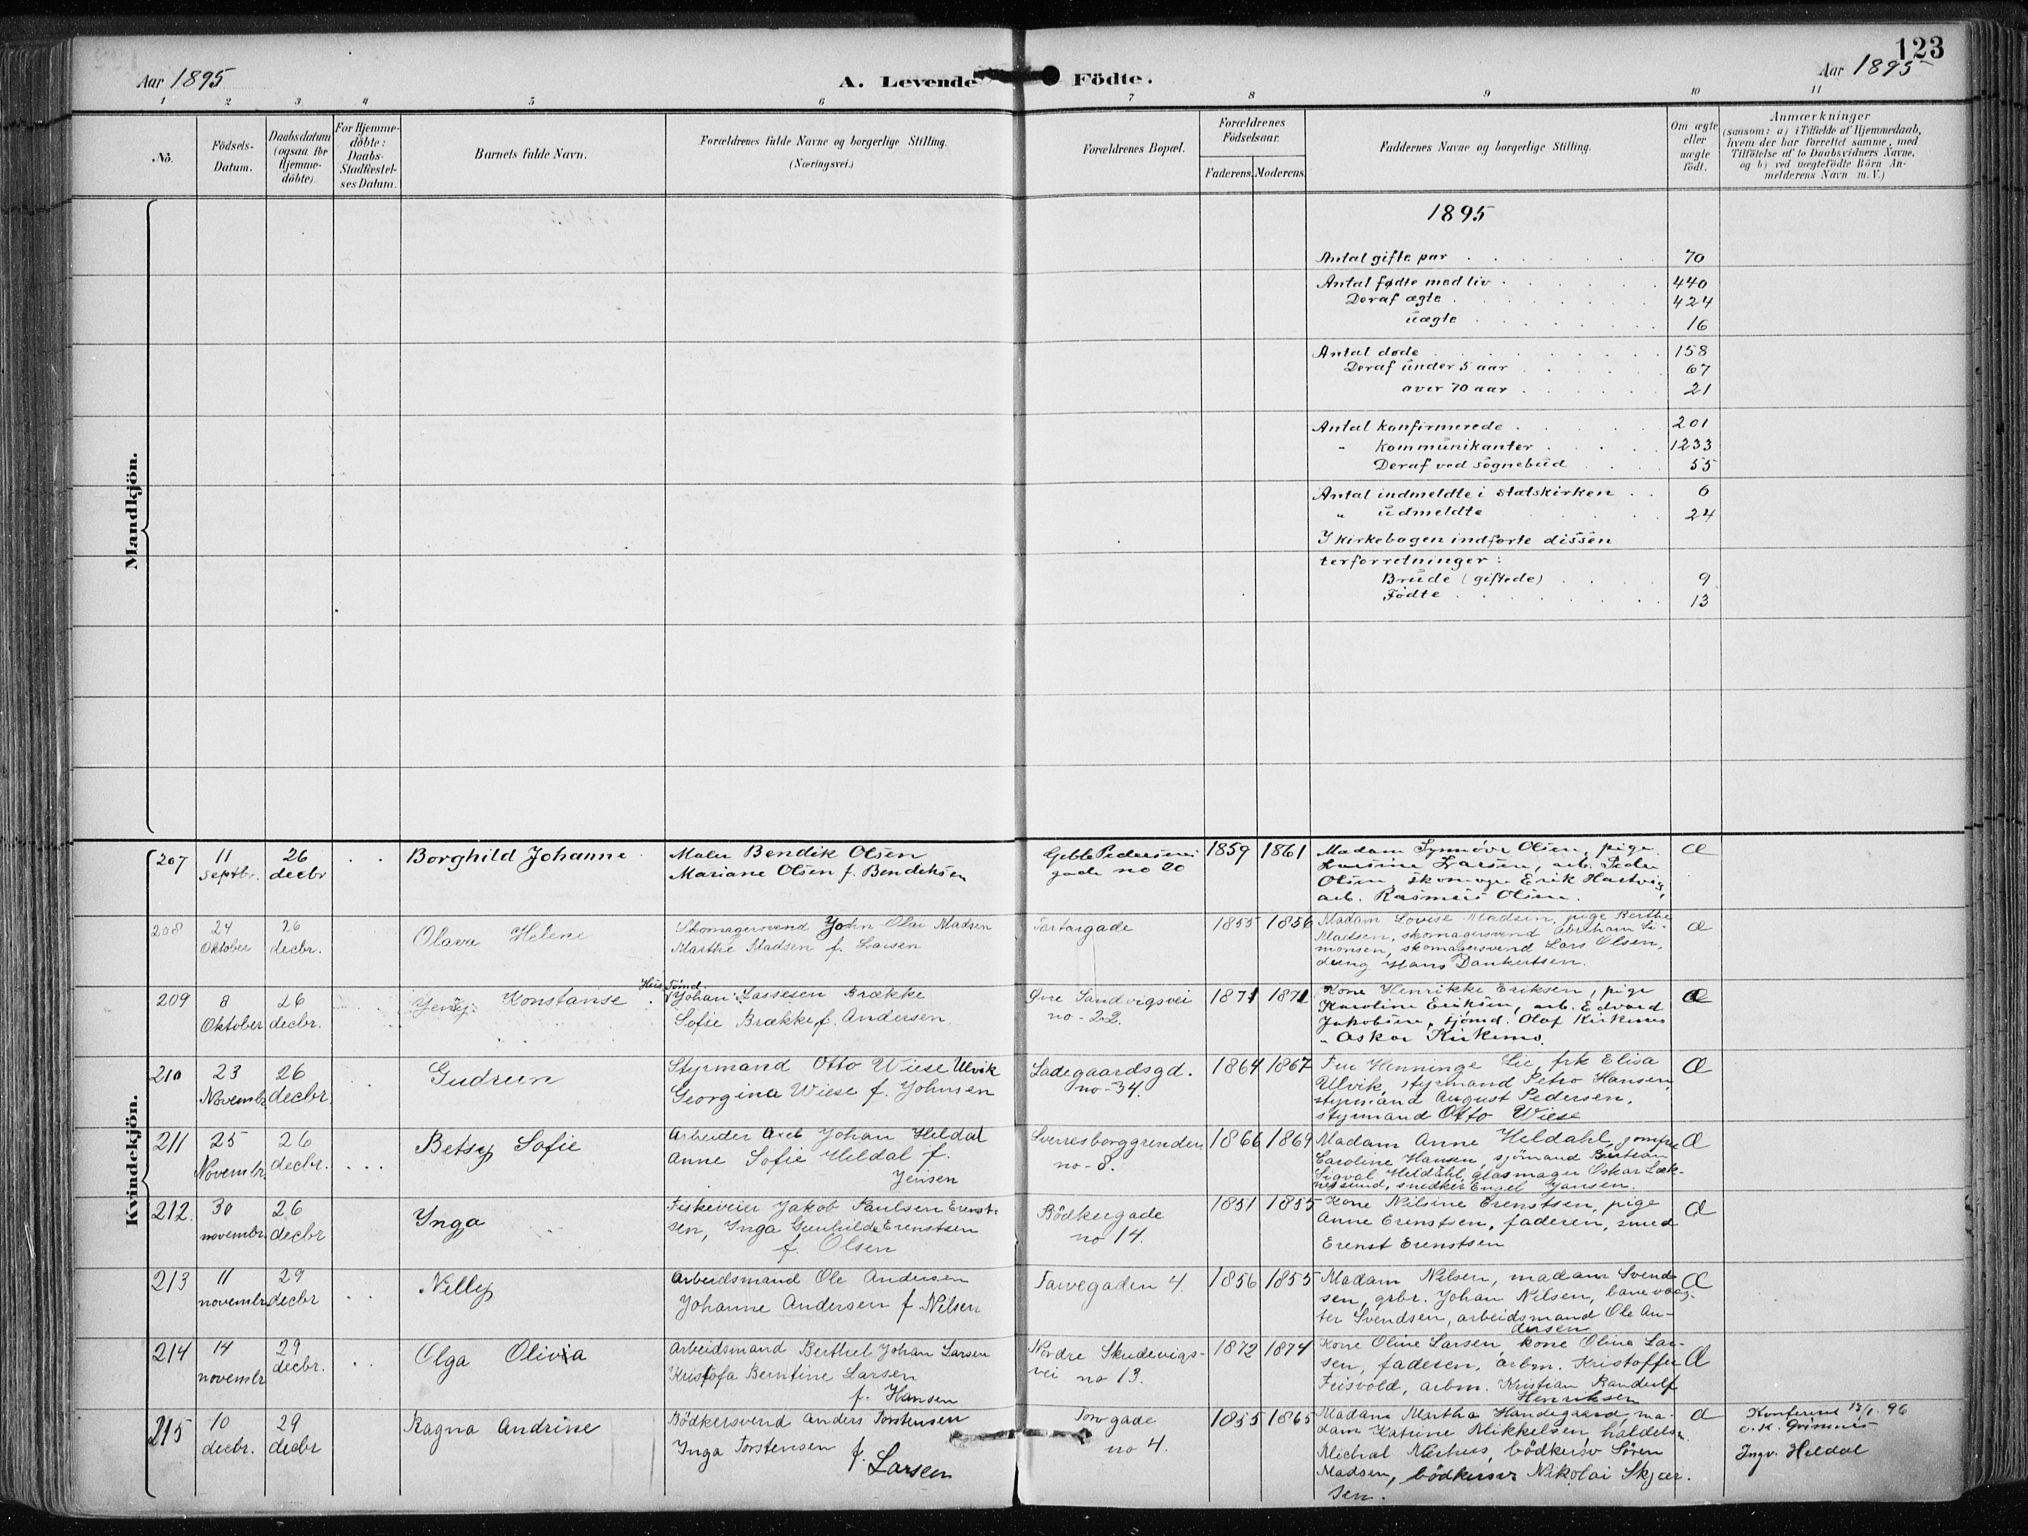 123
Aar 1895
A. Levende Födte.
Aar 1895
1 2 3 4 5 6 7 8 9 10 11
No.
Födsels-
Datum.
Daabsdatum
(ogsaa for
Hjemme-
döbte).
For Hjemme-
döbte:
Daabs-
Stadfæstel-
ses Datum.
Barnets fulde Navn.
Forældrenes fulde Navne og borgerlige Stilling.
(Næringsvei.)
Forældrenes Bopæl.
Forældrenes
Födselsaar.
Faderens. Moderens.
Faddernes Navne og borgerlige Stilling.
Om ægte
eller
uægte
født.
Anmærkninger
(saasom: a) i Tilfælde af Hjemmedaab,
hvem der har forrettet samme, med
Tilföielse af to Daabsvidners Navne,
og b) ved uægtefödte Börn An-
melderens Navn m. V.)
Mandkjön.
1895
Antal gifte par 70
Antal fødte med liv 440
Deraf ægte 424
uægte 16
Antal døde 158
Deraf under 5 aar 67
over 70 aar 21
Antal konfirmerede 201
" kommunikanter 1233
Deraf ved sognebud 55
Antal indmeldte i statskirken 6
" udmeldte 24
I kirkebogen indførte dissen
terforretninger:
Brude (giftede) 9
Fødte 13
Kvindekjön.
207
11
septbr.
26
decbr
Borghild Johanne
Maler Bendik Olsen
Mariane Olsen f. Bendiksen
Geble Pedersens
gade no 20
1859 1861
Madam Synnøve Olsen, pige
Larsen, arb. Peder
Olsen, skomager Erik Hartvig,
arb. Rasmus Olsen.
Æ
208
24
Oktober
26
decbr.
Olava Helene
Skomagersvend John Olai Madsen
Marthe Madsen f. Larsen
Tartargade
1855 1856
Madam Lovise Madsen, pige Berthe
Madsen, skomagersvend Abraham Si-
monsen, skomagersvend Lars Olsen,
Hans Dankertsen.
Æ
209
8
Oktober
26
decbr.
Jenny Konstanse
Johan Lassesen Brække
Sofie Brække f. Andersen
Øvre Sandvigsvei
no - 22.
1871 1871
Kone Henrikke Eriksen, pige
Karoline Eriksen, arb. Edvard
Jakobsen, sjömd. Olaf Kirkenes
" Oskar Kirkenes.
Æ
210
23
Novembr.
26
decbr.
Gudrun
Styrmand Otto Wiese Ulvik
Georgina Wiese f. Johnsen
Ladegaardsgd.
no - 34.
1864 1867
Fru Henninge Lie, frk Elisa
Ulvik, styrmand Petro Hansen,
styrmand August Pedersen,
styrmand Otto Wiese
Æ
211
25
Novembr.
26
decbr.
Betsy Sofie
Arbeider Axel Johan Heldal
Anne Sofie Heldal f.
Jensen
Sverresborggrenden
no - 8.
1866 1869
Madam Anne Heldahl, jomfru
Caroline Hansen, sjömand Bertian
Sigval Heldahl, glasmager Oskar Sæk-
, snedker Engel Jansen.
Æ
212.
30
novembr.
26
decbr
Inga
Jakob Paulsen Erenst-
sen, Inga Gunhilde Erenstsen
f. Olsen
Bödkergade
no 14.
1851 1855
Kone Nilsine Erenstsen, pige
Anne Erenstsen, faderen, smed
Erenst Erenstsen
Æ
213
11
novembr.
29
decbr
Nelly
Arbeidsmand Ole Andersen
Johanne Andersen f. Nilsen
Farvegaden 4.
1856 1855
Madam Nilsen, madam Svend-
sen, grbr. Johan Nilsen, banevog-
ter Svendsen, arbeidsmand Ole An-
dersen
Æ
214
14
novembr
29
decbr.
Olga Olivia
Arbeidsmand Berthel Johan Larsen
Kristofa Berntine Larsen
f. Hansen
Nordre Skudevigs-
vei no 13.
1872 1874
Kone Oline Larsen, kone Olina Lar-
sen, faderen, arbm. Kristoffer
Frisvold, arbm. Kristian Randulf
Henriksen
Æ
215
10
decbr.
29
decbr
Ragna Andrine
Bödkersvend Anders Torstensen
Inga Torstensen f.
Larsen
Torvgade
no 4.
1855 1865
Madam Martha Handegaard, ma-
dam Katrine Mikkelsen,
Michal , bödkersv Sören
Madsen, bödkersv Nikolai Skjær-
sen.
Æ
Konfereret 13/1 96
Ingv. Heldal